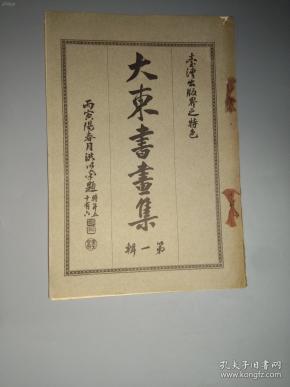 臺灣出版界之特色
大東書畫集
第一輯
丙寅陽春月洪以南題
時年五十有六
孔夫子旧书网